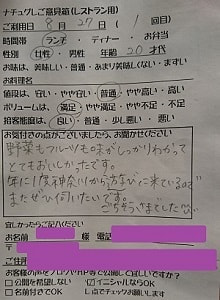 ナチュグレご意見箱(レストラン用)
ご利用日 8月27日(1回目)
時間帯 ランチ ・ ディナー ・ お弁当
性別 女性・男性 年齢 20才代
お味は、美味しい・普通・あまり美味しくない・まずい
お料理名
値段は、安い・やや安い・普通・やや高い・高い
ボリュームは、満足・やや満足・やや不足・不足
接客態度は、良い・普通・少し悪い・悪い
お気付きの点がございましたら、お聞かせください
野菜もフルーツも味がしっかりわかって
とてもおいしかったです。
年に1度神奈川から
に来ているので
またぜひ伺いたいです。
ごちそうさまでした
宜しかったらご記入ください
お名前 様 電話
ご住所
お客様の声をブログやHP等で公開してもよいですか?
□公開を希望しない □イニシャルならOK
□名前付きでOK しるしチェックお願いします